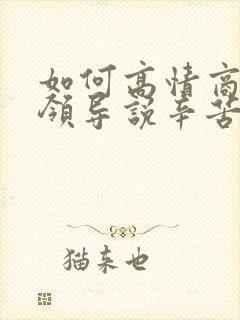 如何高情商
领导说辛苦
猫来也